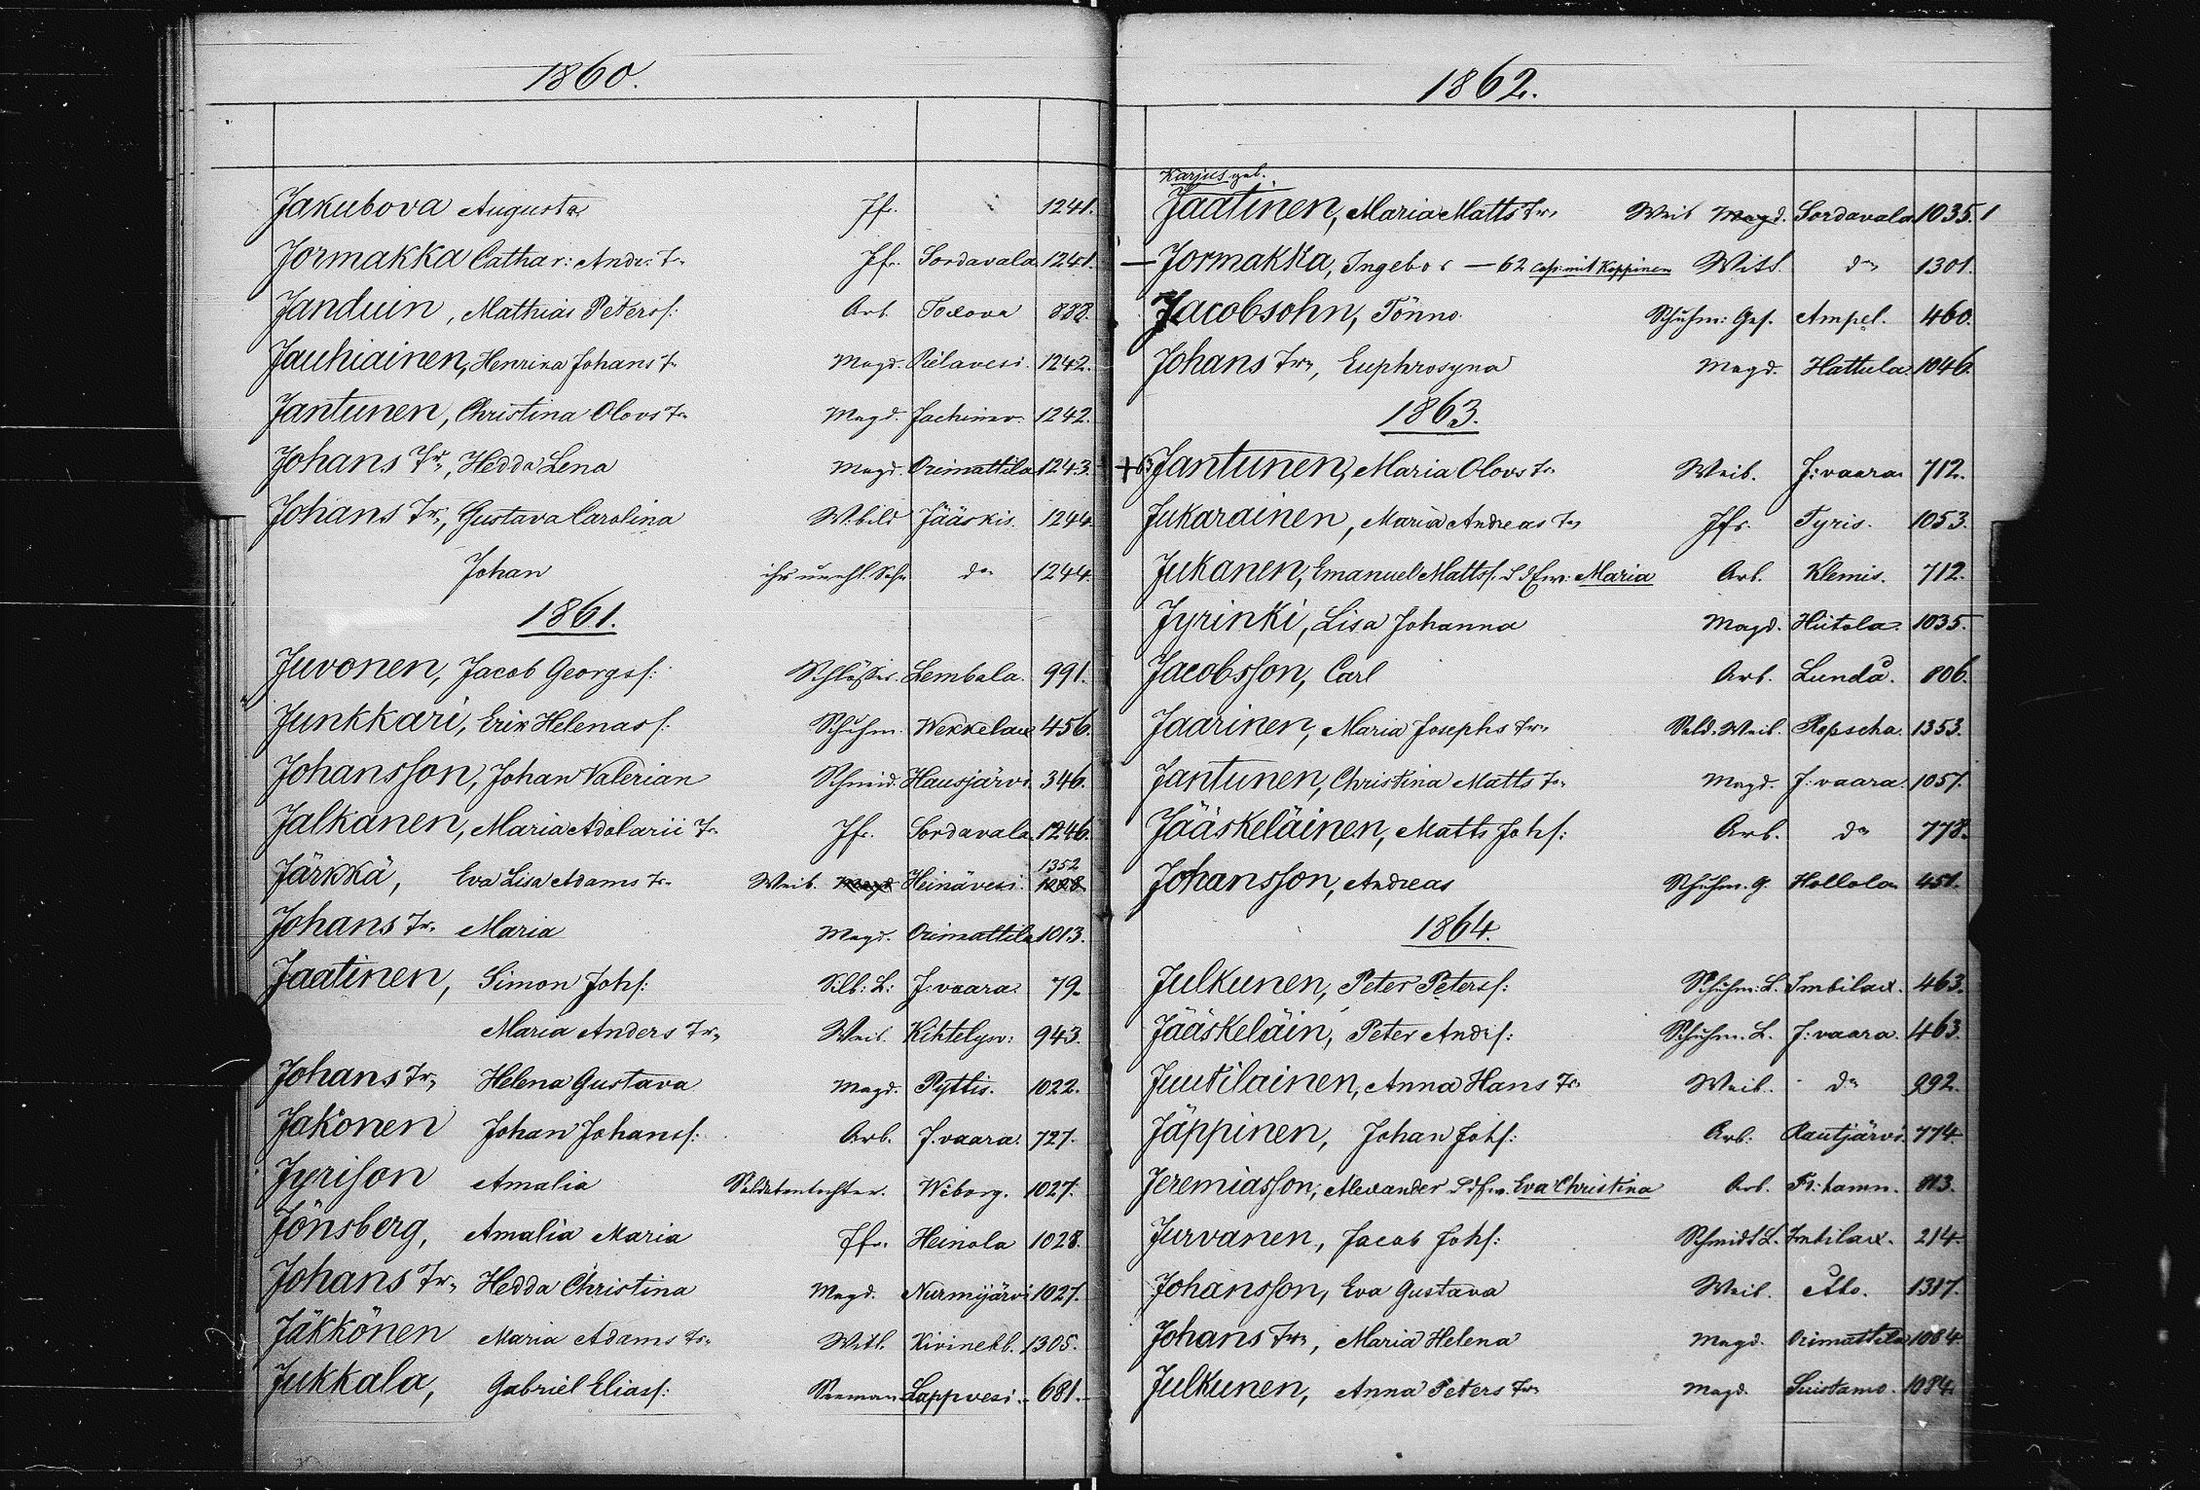 1860.
Jakubova Augusta Jfr. 1241.
Jormakka Cathar: Andr: Tr Jfr. Sordavala 1241.
Janduin, Mathias Peterss: Arb. Toxova 888.
Jauhiainen, Henrika Johans Tr Magd. Pielavesi. 1242.
Jantunen, Christina Olovs Tr Magd. Jockimv. 1242.
Johans Tr, Hedda Lena Magd. Orimattila 1243.
Johans Tr, Gustava Carolina W:bild Jääskis. 1244.
Johan ihr unehl. Sohn do 1244.
1861.
Juvonen, Jacob Georgss: Schlosser. Lembala. 991.
Junkkari, Erik Helenas s. Schuhm. Wekkelax 456.
Johansson, Johan Valerian Schmid. Hausjärvi. 346.
Jalkanen, Maria Adolarii Tr Jfr. Sordavala 1246.
Järkkä, Eva Lisa Adams Tr Weib. Magd. Heinävesi. 1352
Johans Tr. Maria Magd. Orimattila 1013.
Jaatinen, Simon Johs: Silb: L: J:vaara. 79.
Maria Anders Tr, Weib. Kihtelysv: 943.
Johans Tr, Helena Gustava Magd. Pyttis. 1022.
Jakonen Johan Johanss: Arb. J.vaara. 727.
Jyrison Amalia Soldatentochter. Wiborg. 1027.
Jönsberg, Amalia Maria Jfr. Heinola 1028.
Johans Tr, Hedda Christina Magd. Nurmijärvi 1027.
Jäkkönen Maria Adams Tr Witt. Kivinebb. 1305.
Jukkala, Gabriel Eliass: Seeman Lappvesi. 681.
1862.
Karjus geb.
Jaatinen, Maria Matts Tr, Weib Magd. Sordavala 1035. 1
— Jormakka, Ingebor — 62 cop. mit Koppinen Witt. do 1301.
Jacobsohn, Tönno. Schuhm: Ges. Ampel. 460.
Johans Tr, Euphrosyna Magd. Hattula. 1046.
1863.
+63 Jantunen, Maria Olovs Tr Weib. J:vaara 712.
Jukarainen, Maria Andreas Tr Jfr. Tyris. 1053.
Jukanen, Emanuel Mattss. Maria Arb. Klemis. 712.
Jyrinki, Lisa Johanna Magd. Hiitola. 1035.
Jacobsson, Carl Arb. Lundå. 806.
Jaarinen, Maria Josephs Tr, Sold. Weib. Ropscha. 1353.
Jantunen, Christina Matts Tr Magd. J:vaara. 1057.
Jääskeläinen, Matts Johs: Arb. do 778.
Johansson, Andreas Schuhm. G. Hollola 451.
1864.
Julkunen, Peter Peterss: Schuhm: L. Imbilax. 463.
Jääskeläin, Peter Ands: Schuhm. L. J:vaara. 463.
Juutilainen, Anna Hans Tr Weib. do 992.
Jäppinen, Johan Johs: Arb. Rautjärvi. 774.
Jeremiasson, Alexander Eva Christina Arb. Fr:hamn. 813.
Jurvanen, Jacob Johs: Schmidt L. Imbilax. 214.
Johansson, Eva Gustava Weib. Åbo. 1317.
Johans Tr, Maria Helena Magd. Orimattila 1084.
Julkunen, Anna Peters Tr Magd. Suistamo. 1084.